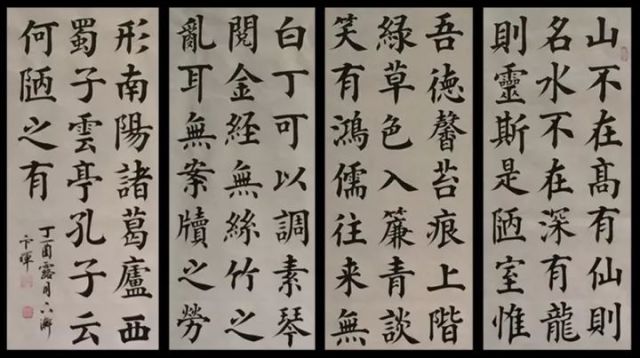 山不在髙有仙則
名水不在深有龍
則靈斯是陋室惟
吾德馨苔痕上階
綠草色入簾青談
笑有鴻儒往来無
白丁可以調素琴
閱金經無絲竹之
亂耳無案牘之勞
形南陽諸葛廬西
蜀子雲亭孔子云
何陋之有
丁酉露月